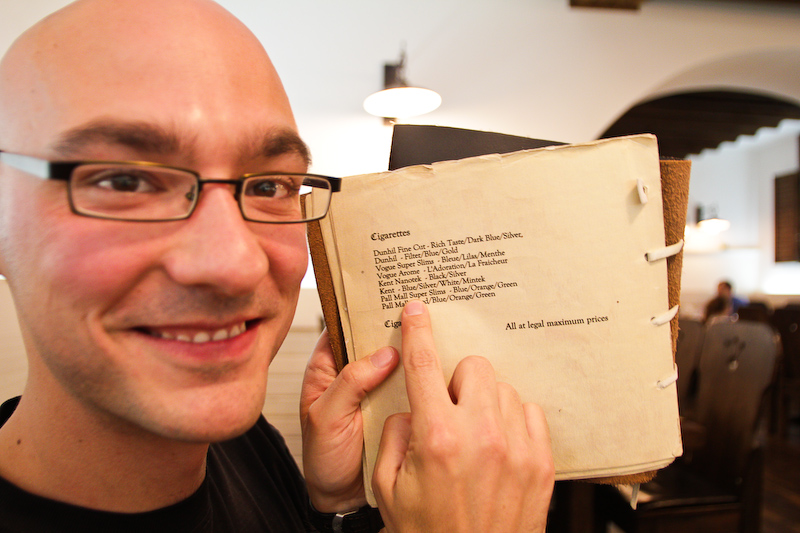 Cigarettes
Dunhil Fine Cut - Rich Taste/Dark Blue/Silver,
Dunhil - Filter/Blue/Gold
Vogue Super Slims - Bleue/Lilas/Menthe
Vogue Arome - L'Adoration/La Fraicheur
Kent Nanotek - Black/Silver
Kent - Blue/Silver/White/Mintek
Pall Mall Super Slims - Blue/Orange/Green
Pall Mall Blue/Orange/Green
All at legal maximum prices